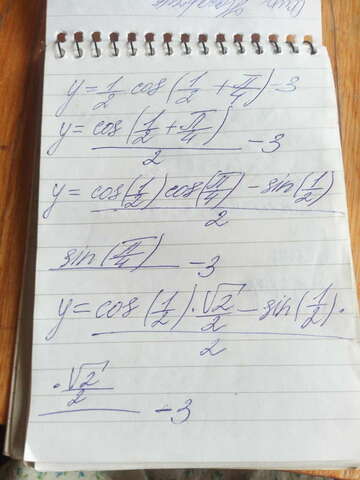 y = 1/2 cos(1/2 + π/4) - 3
y = cos(1/2 + π/4)/2 - 3
y = cos(1/2)cos(π/4) - sin(1/2)/2
sin(π/4)/ - 3
y = cos(1/2)·√2/2 - sin(1/2)·/2
·√2/2/ - 3